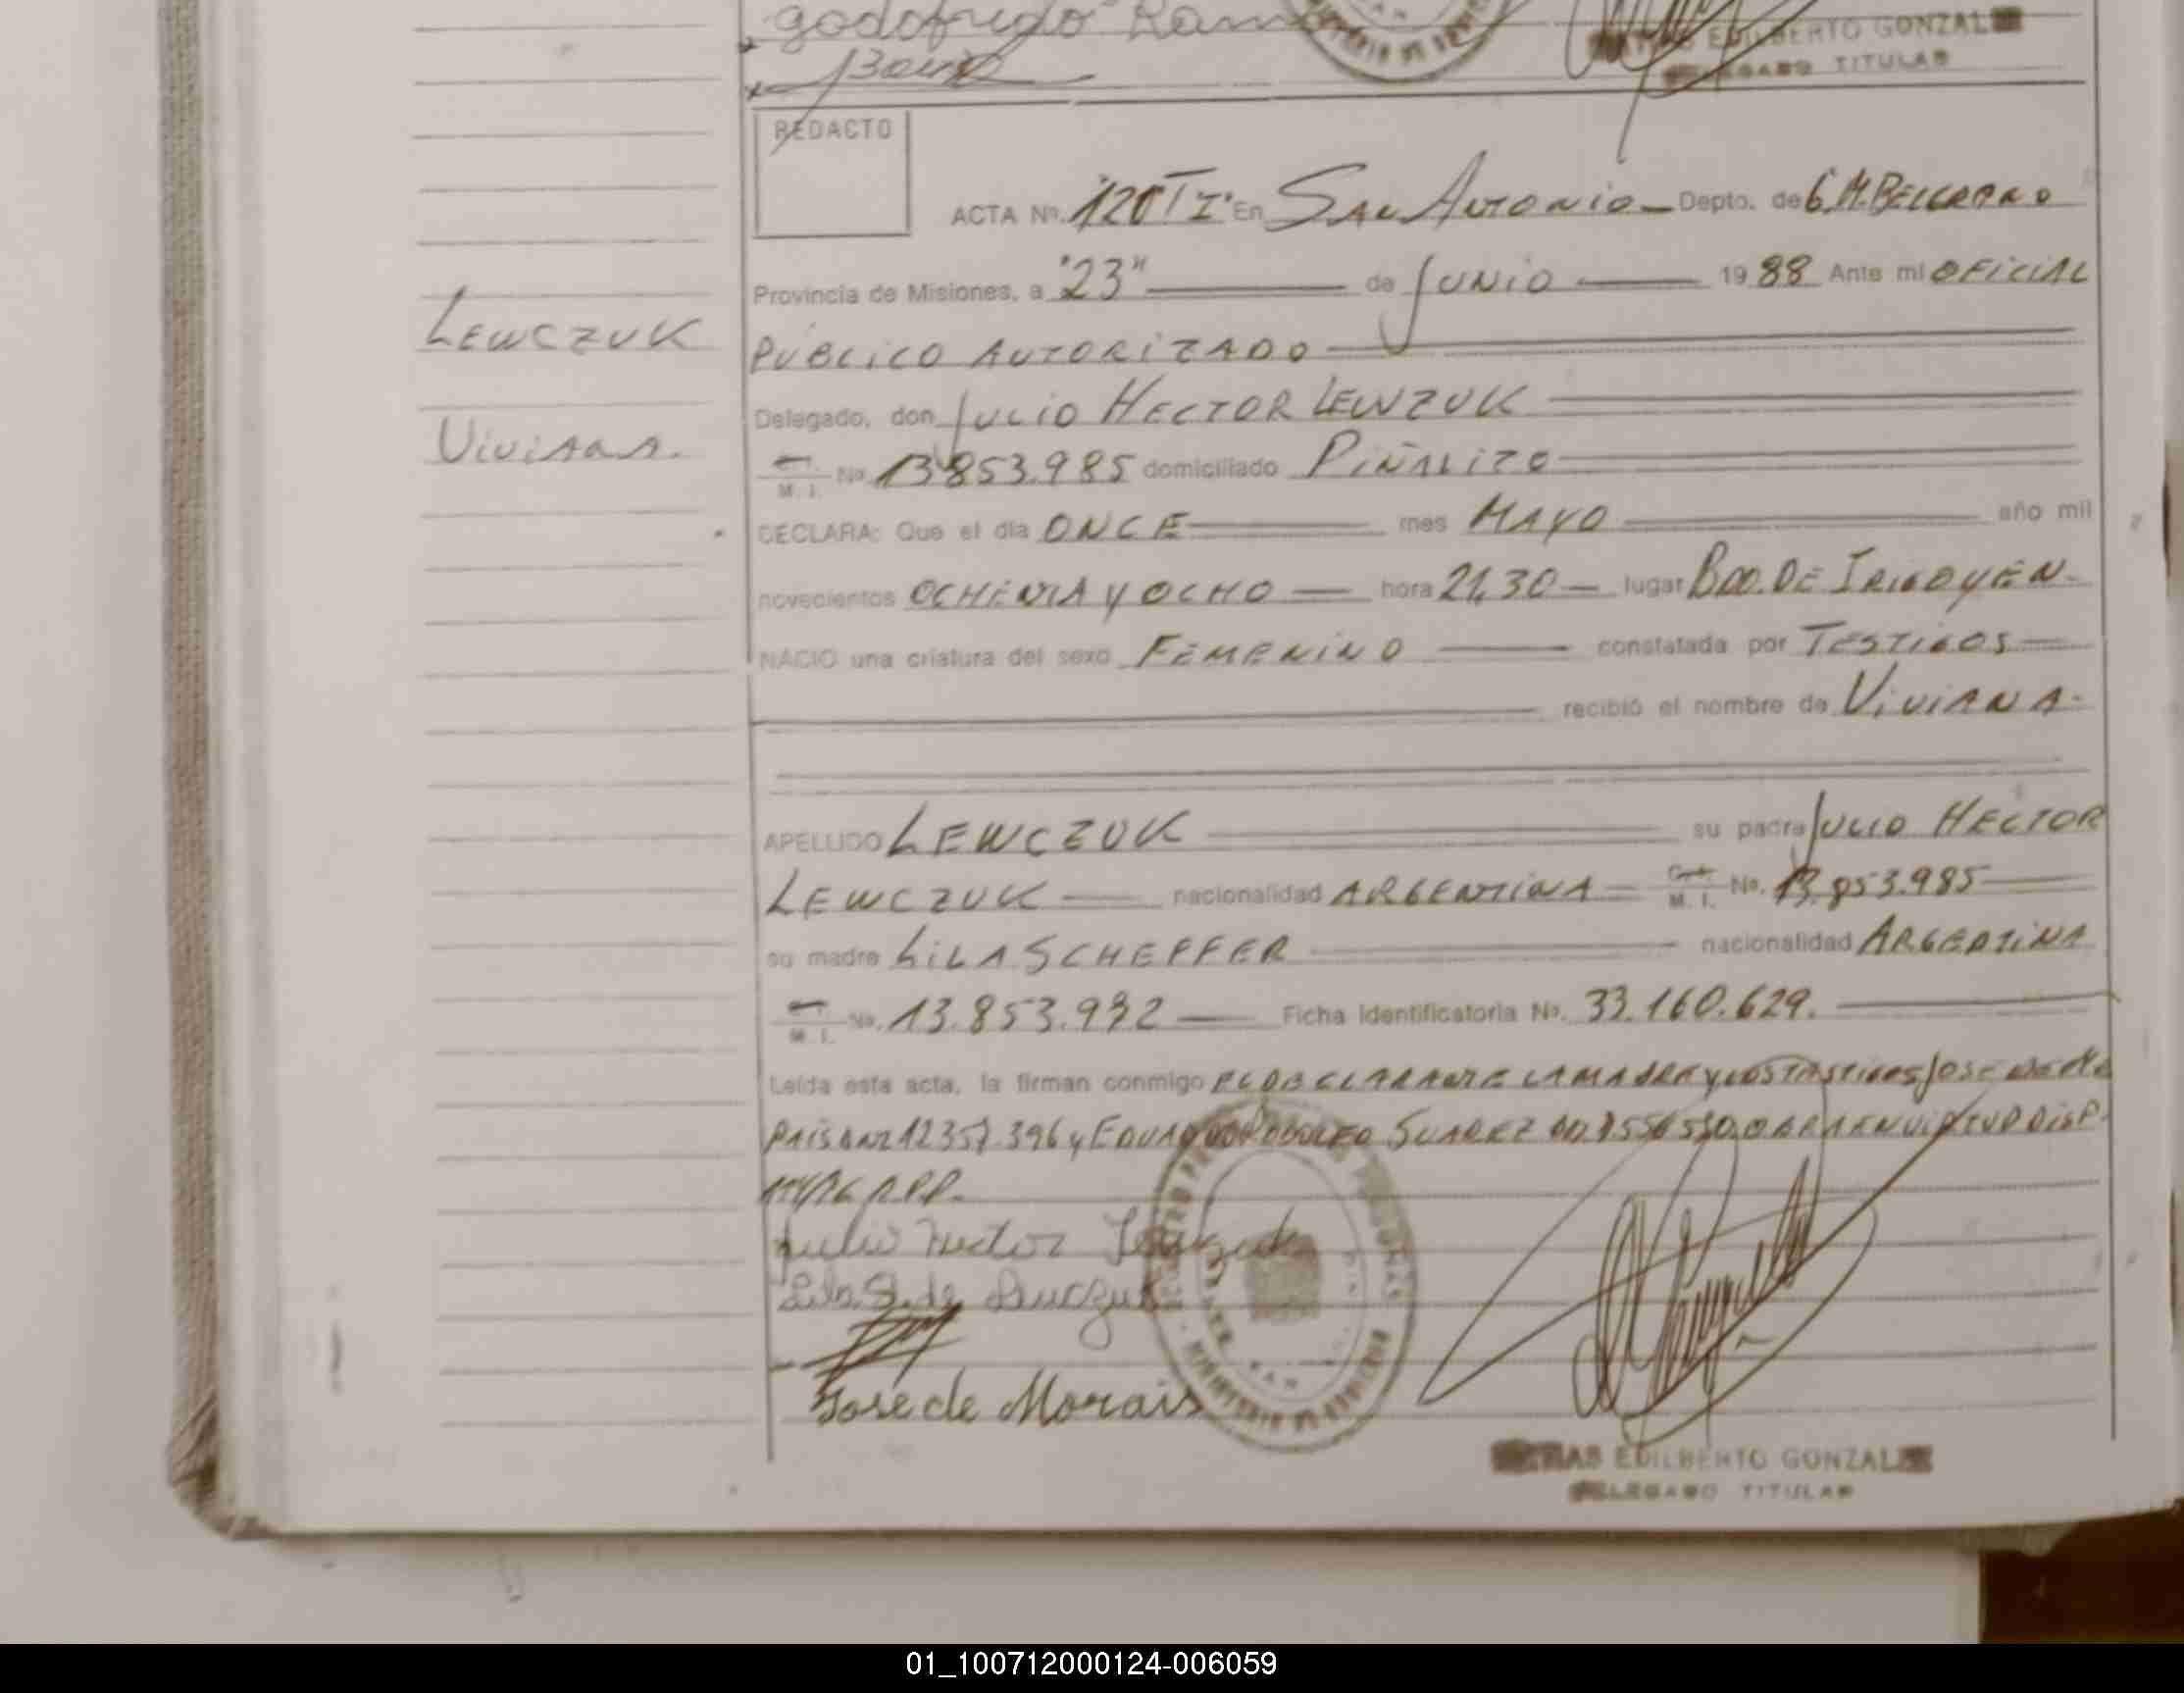 godofrido Ram
EDILBERTO GONZAL
GADO TITULAR
REDACTO
ACTA Nº. "120 T I" En SAN ANTONIO - Depto. de G.M. BELGRANO
Provincia de Misiones, a "23" de JUNIO 1988 Ante mi OFICIAL
PUBLICO AUTORIZADO
Delegado, don JULIO HECTOR LEWZUK
M. I. Nº 13853.985 domiciliado PIÑALITO
DECLARA: Que el día ONCE mes MAYO año mil
novecientos OCHENTA Y OCHO hora 21,30 lugar BDO. DE IRIGOYEN.
NACIO una criatura del sexo FEMENINO constatada por TESTIGOS
recibió el nombre de VIVIANA.
APELLIDO LEWCZUK su padre JULIO HECTOR
LEWCZUK nacionalidad ARGENTINA M. I. Nº. 13.853.985
su madre LILA SCHEFFER nacionalidad ARGENTINA
M. I. Nº. 13.853.992 Ficha Identificatoria Nº. 33.160.629.
Leída esta acta, la firman conmigo EL DECLARANTE LA MADRE Y LOS TESTIGOS JOSE DE MO
RAIS DNI 12357.396 y EDUARDO RODOLFO SUAREZ OBRA EN VIRTUD DISP.
R.P.P.
Julio Hector
Lila S. de Leuczuk
José de Morais
EDILBERTO GONZAL
DELEGADO TITULAR
LEWCZUK
VIVIANA.
01_100712000124-006059